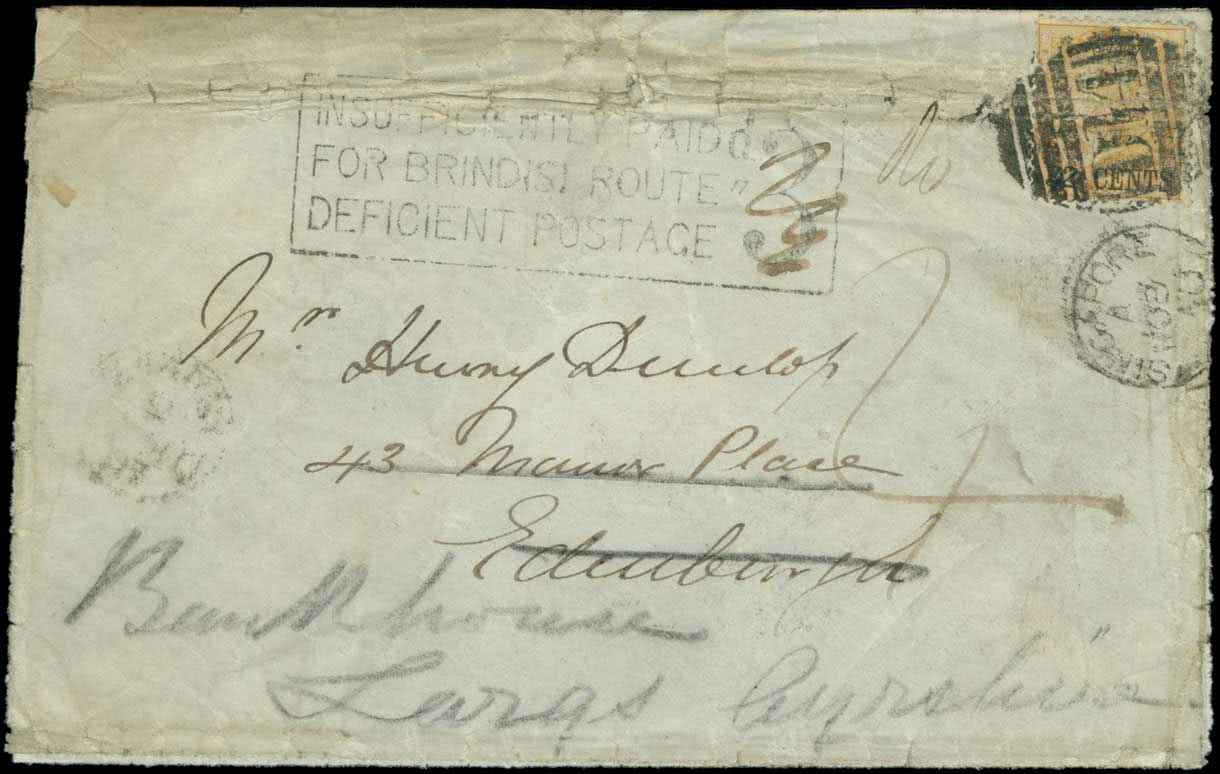 INSUFFICIENTLY PAID
FOR BRINDISI ROUTE
DEFICIENT POSTAGE
CENTS
SINGAPORE
A
Mr Henry Dunlop
43 Manor Place
Edinburgh
Bankhouse
Largs Ayrshire